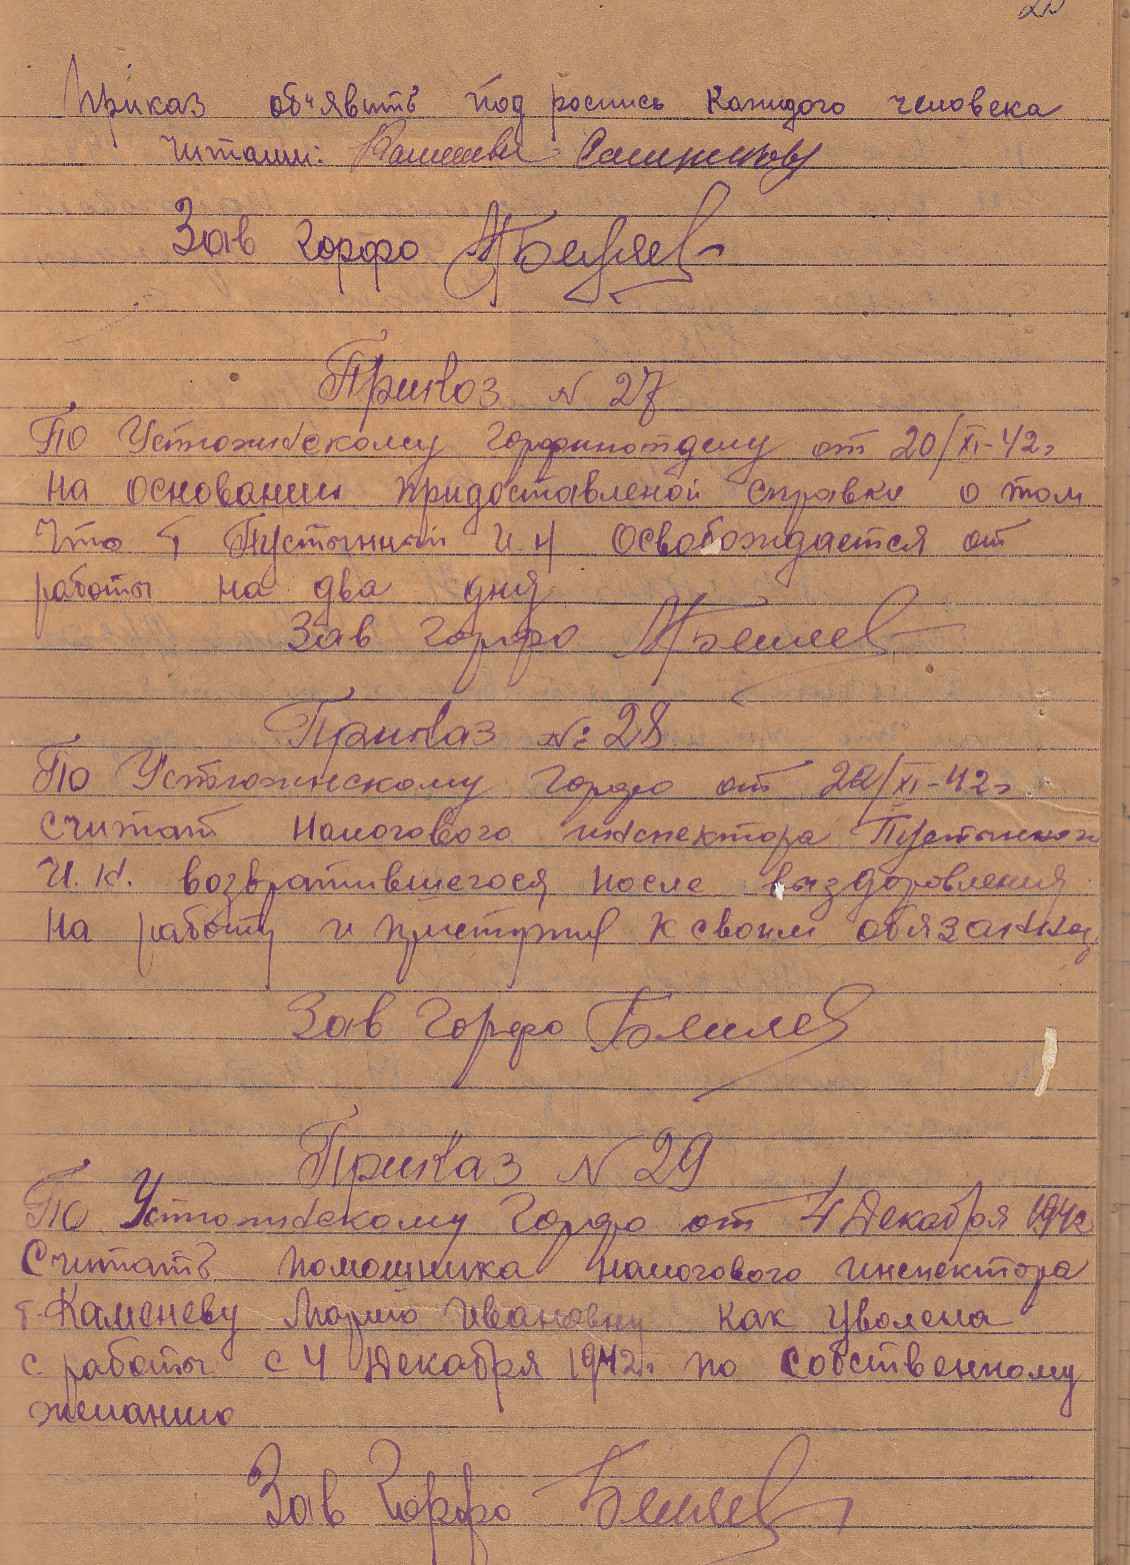 Приказ обчявить под роспись каждого человека
Читали:
Зав горфо Беляев
Приказ N 27
По Устюженскому горфинотделу от 20/XI-42г
на основании придоставленой справки о том
что т Пустынный И.К освобождается от
работы на два дня
Зав горфо Беляев
Приказ № 28
По Устюженскому горфо от 22/XI-42г
Считат налогового инспектора Пустынного
И.К. возвратившегося после выздоровления
на работу и приступил к своим обязанно
Зав горфо Беляев
Приказ N 29
По Устюженскому Горфо от 4 Декабря 1942
Считать помощника налогового инспектора
т. Каменеву Марию Ивановну как уволена
с работы с 4 Декабря 1942г. по собственному
желанию
Зав Горфо Беляев